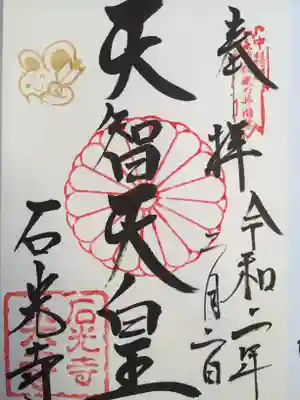 奉拝
令和二年
二月二日
天智天皇
石光寺
石光寺